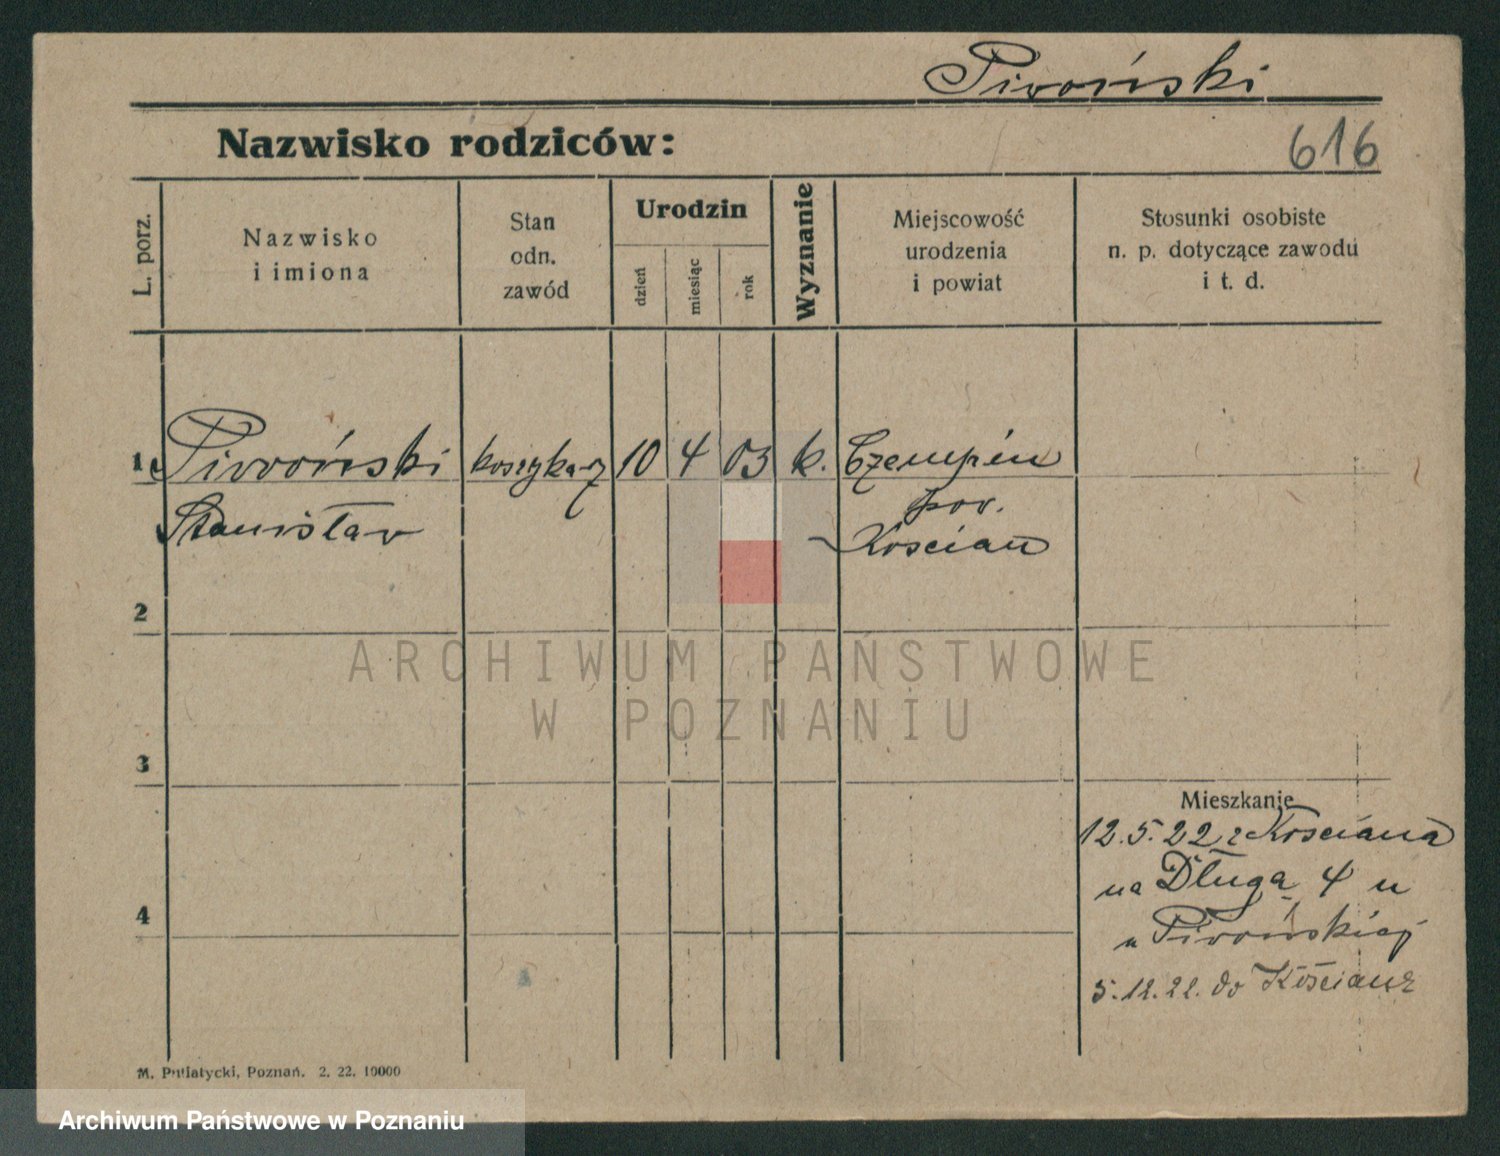 Piwoński
Nazwisko rodziców:
616
L. porz.
Nazwisko
i imiona
Stan
odn.
zawód
Urodzin
dzień
miesiąc
rok
Wyznanie
Miejscowość
urodzenia
i powiat
Stosunki osobiste
n. p. dotyczące zawodu
i t. d.
1 Piwoński koszykarz 10 4 03 k. Czempiń
Stanisław pow.
Kościan
2
ARCHIWUM PAŃSTWOWE
W POZNANIU
3
Mieszkanie
12.5.22 z Kościana
na Długa 4 u
u Piwońskiej
4
5.12.22. do Kościana
M. Putiatycki, Poznań. 2. 22. 10000
Archiwum Państwowe w Poznaniu